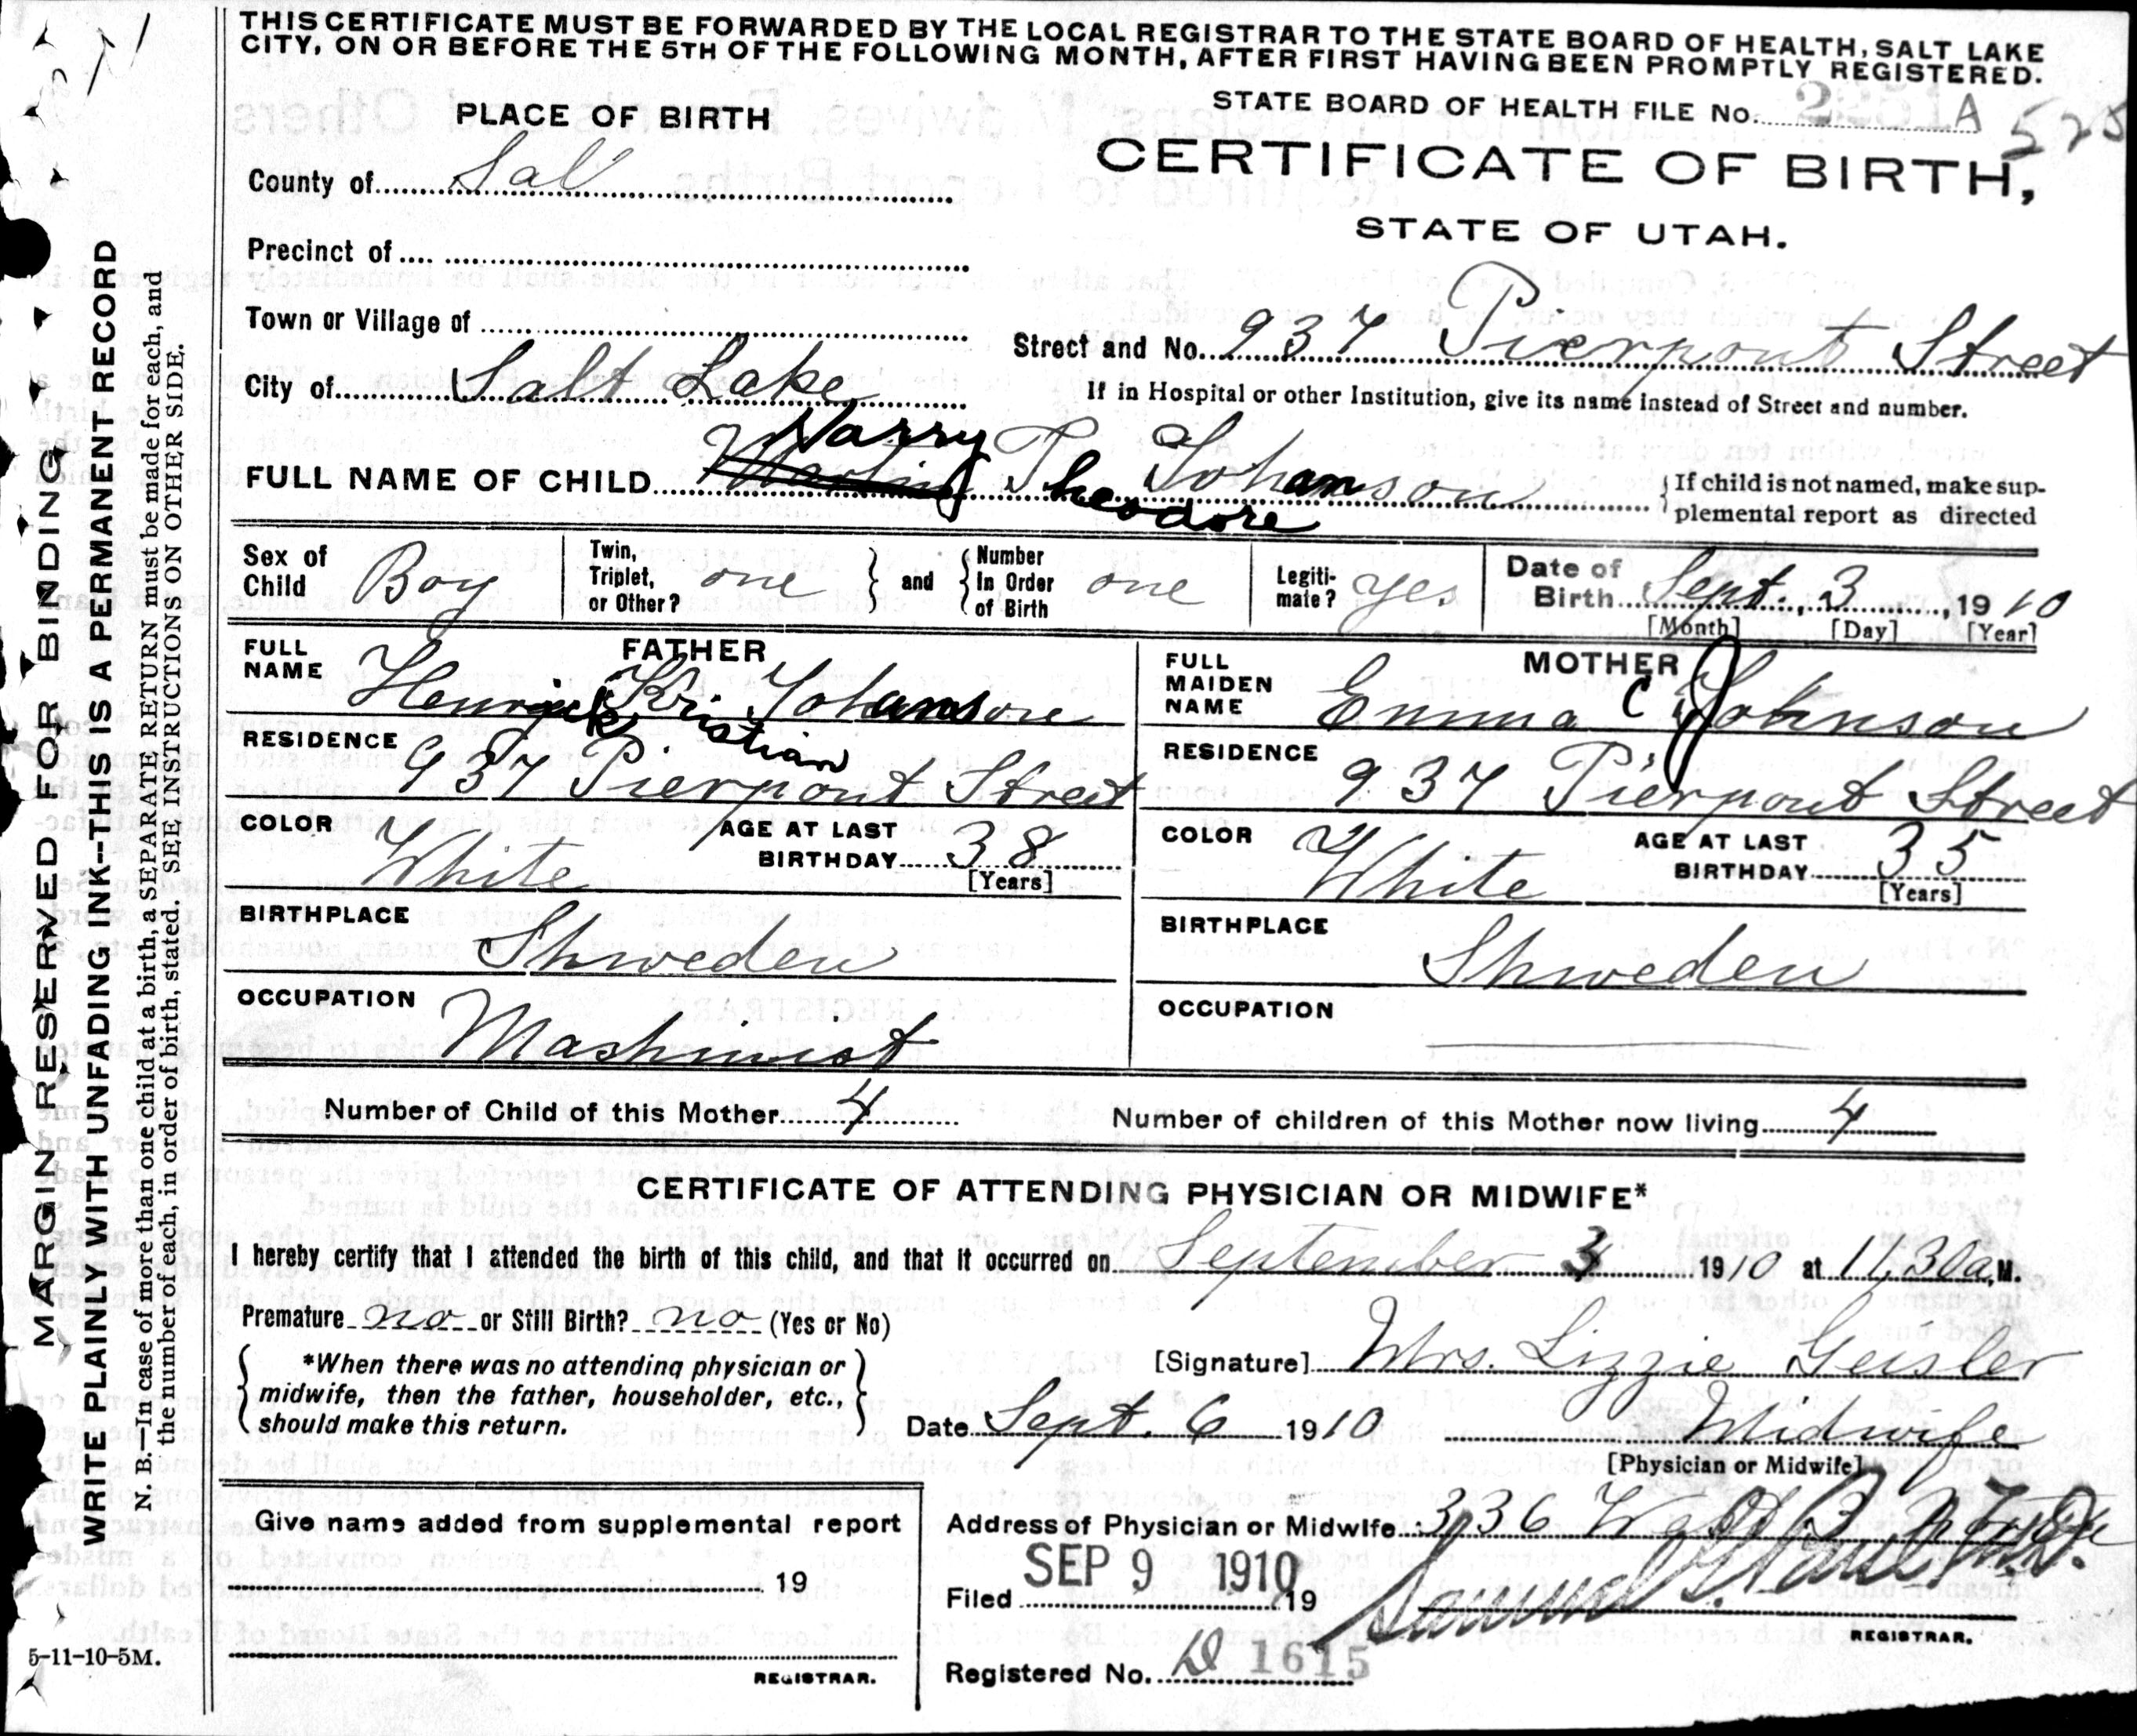 THIS CERTIFICATE MUST BE FORWARDED BY THE LOCAL REGISTRAR TO THE STATE BOARD OF HEALTH, SALT LAKE
CITY, ON OR BEFORE THE 5TH OF THE FOLLOWING MONTH, AFTER FIRST HAVING BEEN PROMPTLY REGISTERED.
STATE BOARD OF HEALTH FILE No. A 525
PLACE OF BIRTH
CERTIFICATE OF BIRTH,
STATE OF UTAH.
County of Sal
Precinct of
Town or Village of
Street and No. 937 Pierpont Street
City of Salt Lake
If in Hospital or other Institution, give its name instead of Street and number.
Harry
FULL NAME OF CHILD The Johanson
Theodore
If child is not named, make sup-
plemental report as directed
Sex of Child Boy
Twin, Triplet, or Other? one
and
Number In Order of Birth one
Legiti-mate? yes
Date of Birth Sept. 3, 1910
[Month] [Day] [Year]
FATHER
FULL NAME Henrik Kri Johanson
Kristian
RESIDENCE 937 Pierpont Street
COLOR White
AGE AT LAST BIRTHDAY 38
[Years]
BIRTHPLACE Shweden
OCCUPATION Mashinist
MOTHER
FULL MAIDEN NAME Emma C Johnson
RESIDENCE 937 Pierpont Street
COLOR White
AGE AT LAST BIRTHDAY 35
[Years]
BIRTHPLACE Shweden
OCCUPATION
Number of Child of this Mother 4
Number of children of this Mother now living 4
CERTIFICATE OF ATTENDING PHYSICIAN OR MIDWIFE*
I hereby certify that I attended the birth of this child, and that it occurred on September 3 1910 at 11,30 a,M.
Premature no or Still Birth? no (Yes or No)
*When there was no attending physician or
midwife, then the father, householder, etc.,
should make this return.
[Signature] Mrs. Lizzie Geisler
Date Sept. 6 1910
Midwife
[Physician or Midwife]
Give name added from supplemental report
19
REGISTRAR.
Address of Physician or Midwife 336 West 3
SEP 9 1910
Filed 19
Samuel G. Paul M.D.
REGISTRAR.
Registered No. D 1615
MARGIN RESERVED FOR BINDING
WRITE PLAINLY WITH UNFADING INK--THIS IS A PERMANENT RECORD
N. B.—In case of more than one child at a birth, a SEPARATE RETURN must be made for each, and
the number of each, in order of birth, stated. SEE INSTRUCTIONS ON OTHER SIDE.
5-11-10-5M.